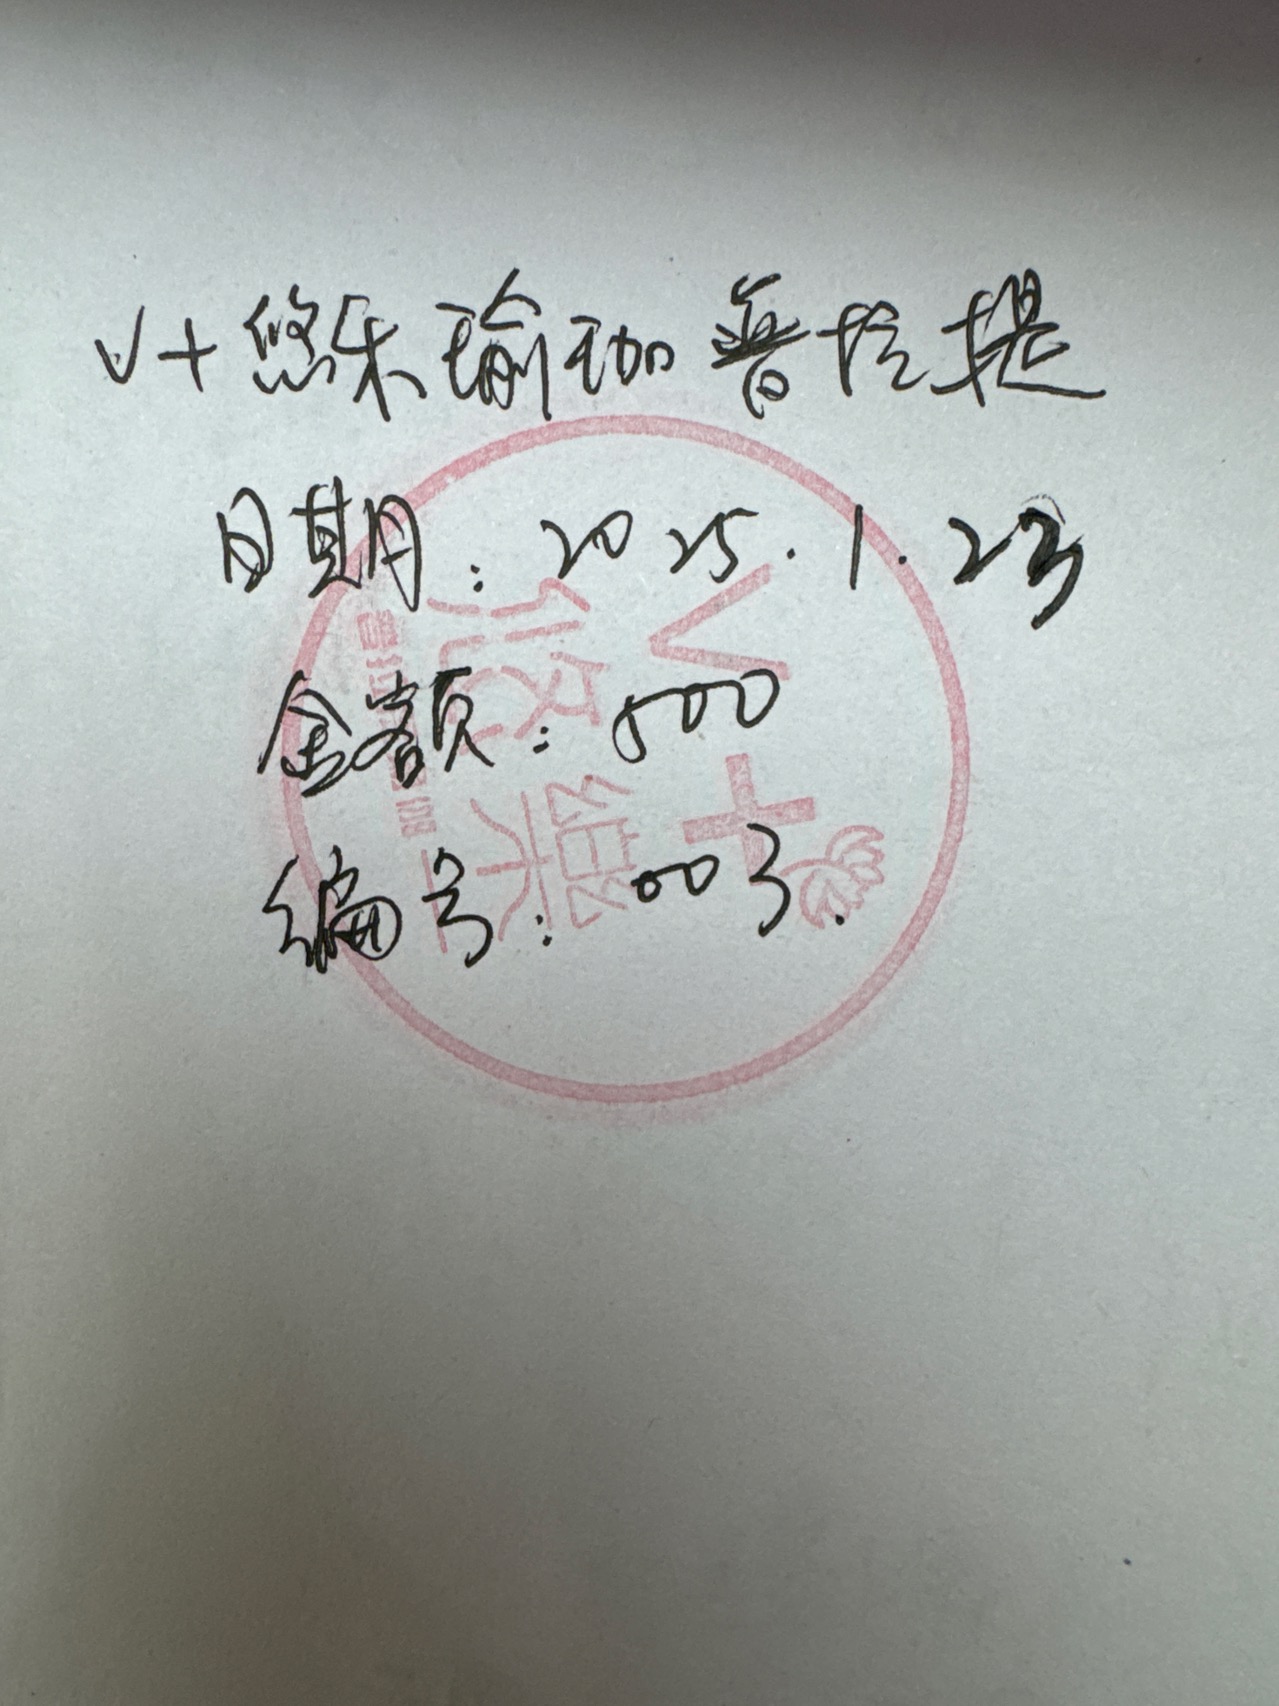 V+悠乐瑜珈普拉提
日期：2025.1.23
金额：500
编号：003.
V+
悠乐